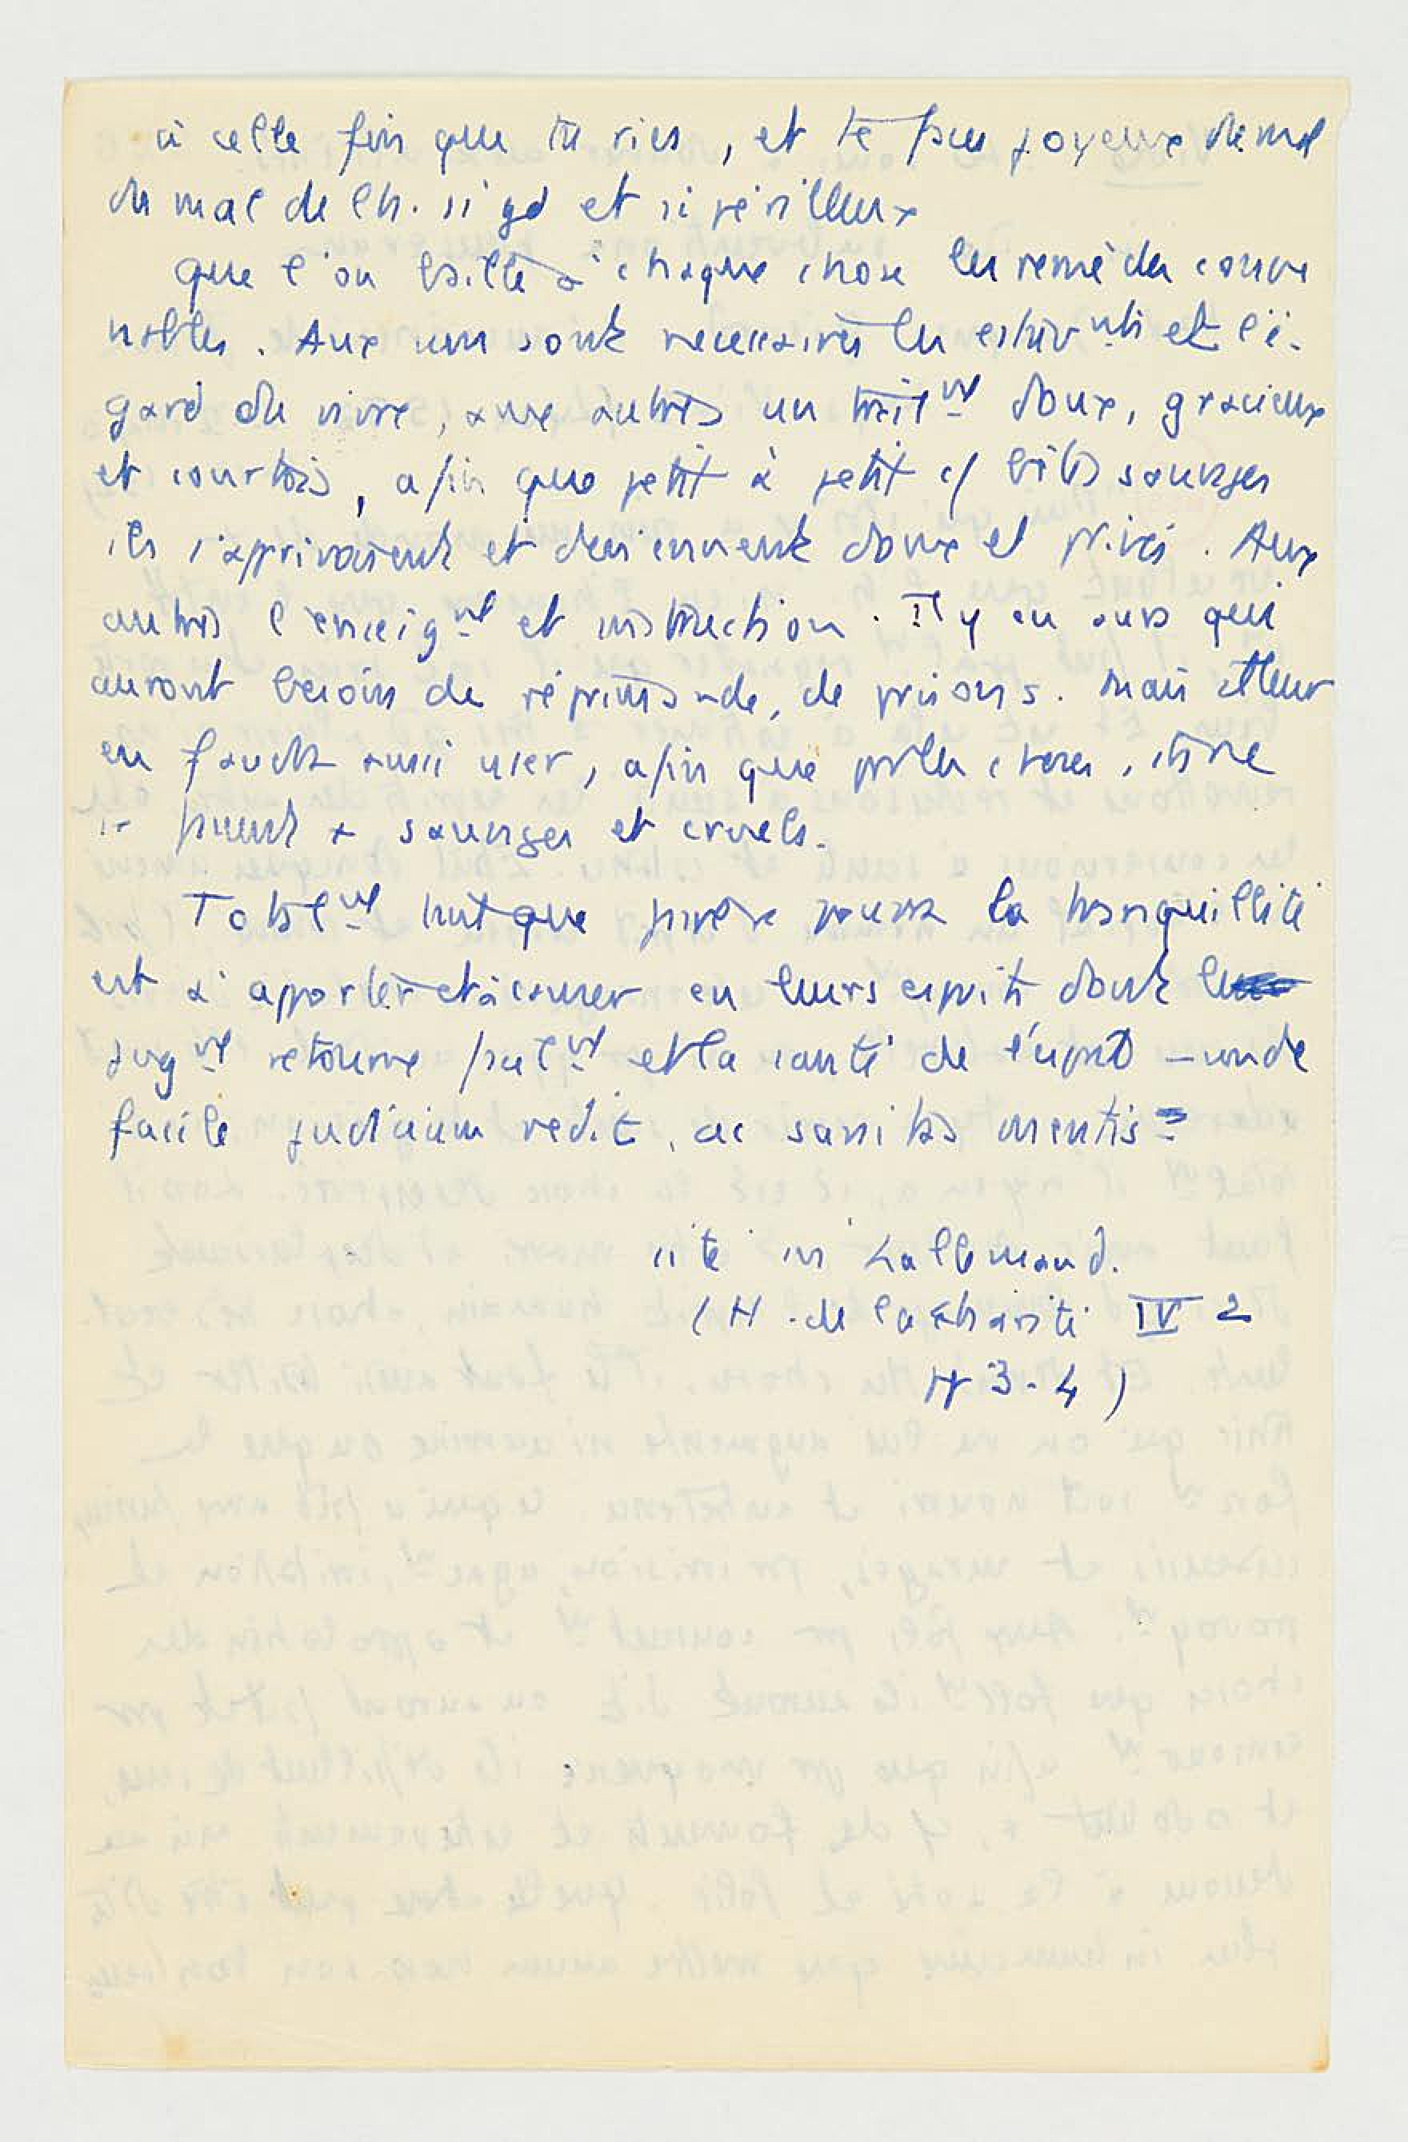 à celle fin que tu ries, et te fais joyeux du mal
du mal de l'h. si gd et si périlleux
que l'on baille à chaque chose les remèdes conve
nables. Aux uns sont necessaires les et l'é-
gard du vivre, aux autres un trait^nt doux, gracieux
et courtois, afin que petit à petit c/ bêtes sauvages
ils s'apprivoisent et deviennent doux et privés. Aux
autres l'enseig^nt et instruction. Il y en aura qui
auront besoin de réprimande, de prisons. Mais
en faudra aussi user, afin que par les choses,
puent + sauvages et cruels.
Total^nt tant que faire pourra la tranquillité
est à apporter et à causer en leurs esprits dont
jug^nt retourne facil^nt et la santé de l'esprit – unde
facile judicium redit, ac sanitas mentis =
cité in Lallemand.
(H. de la Charité IV 2
pp 3-4)